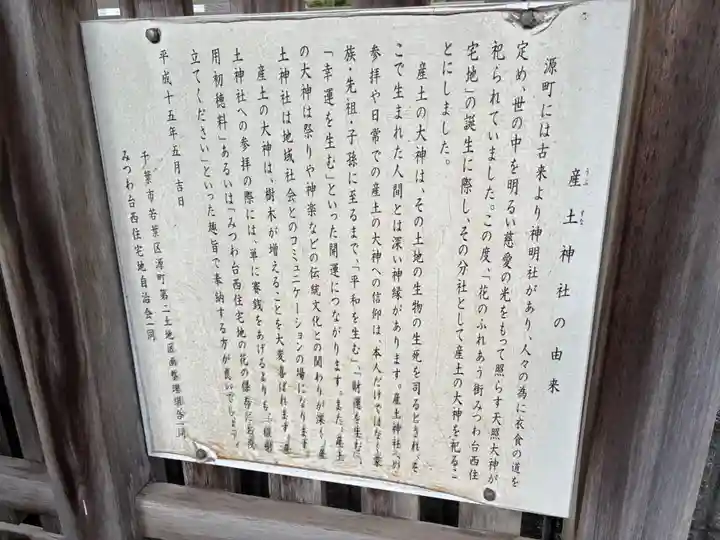 産土神社の由来
うぶすな
源町には古来より神明社があり、人々の為に衣食の道を
定め、世の中を明るい慈愛の光をもって照らす天照大神が
祀られていました。この度、「花のふれあう街みつわ台西住
宅地」の誕生に際し、その分社として産土の大神を祀るこ
とにしました。
産土の大神は、その土地の生物の生死を司るとされ、こ
こで生まれた人間とは深い神縁があります。産土神社への
参拝や日常での産土の大神への信仰は、本人だけではなく家
族・先祖・子孫に至るまで、「平和を生む」、「財運を生む」、
「幸運を生む」といった開運につながります。また、産土
の大神は祭りや神楽などの伝統文化との関わりが深く、産
土神社は地域社会とのコミュニケーションの場になります。
産土の大神は、樹木が増えることを大変喜ばれます。産
土神社への参拝の際には、単に賽銭をあげるよりも、「植樹
用初穂料」あるいは「みつわ台西住宅地の花の保存にお役
立てください」といった趣旨で奉納する方が良いでしょう。
平成十五年五月吉日
千葉市若葉区源町第二土地区画整理組合一同
みつわ台西住宅地自治会一同